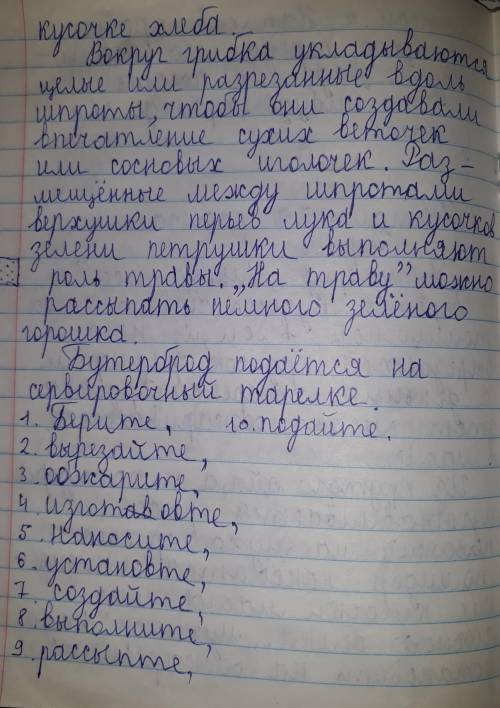 кусочке хлеба.
Вокруг грибка укладываются
целые или разрезанные вдоль
шпроты, чтобы они создавали
впечатление сухих веточек
или сосновых иголочек. Раз-
мещённые между шпротами
верхушки перьев лука и кусочков
зелени петрушки выполняют
роль травы. „На траву” можно
рассыпать немного зелёного
горошка.
Бутерброд подаётся на
сервировочный тарелке.
1. Берите, 10. подайте.
2. вырезайте,
3. обжарите,
4. изготавовте,
5. наносите,
6. установте,
7. создайте,
8. выполните,
9. рассыпте,